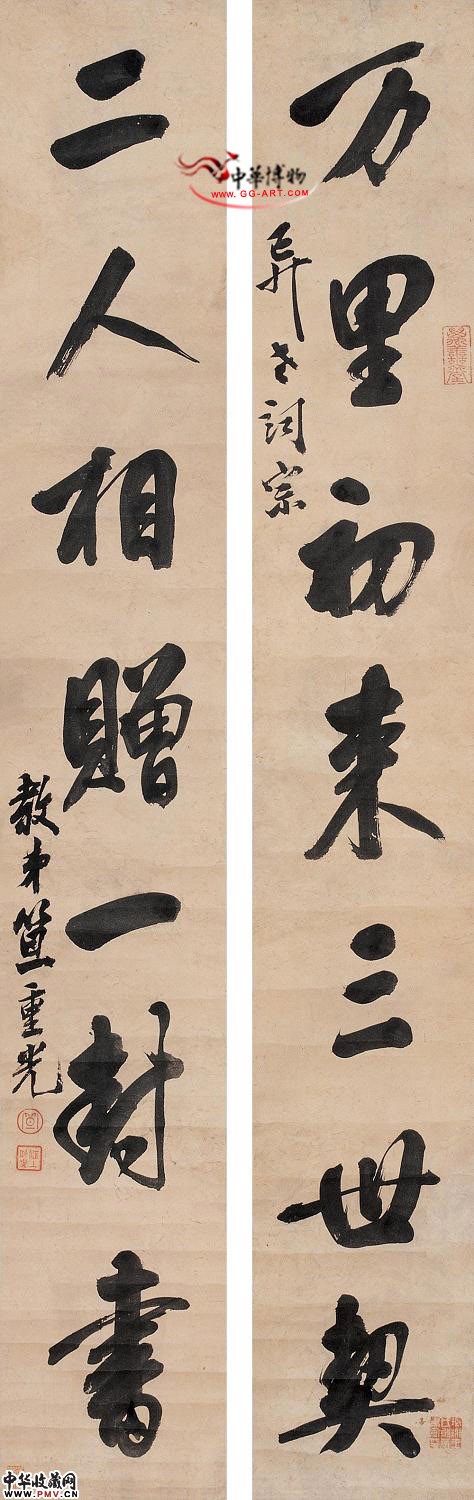 万里初来三世契
昇老词宗
二人相贈一封書
教弟笪重光
中華博物
WWW.GG-ART.COM
中华收藏网
WWW.PMV.CN